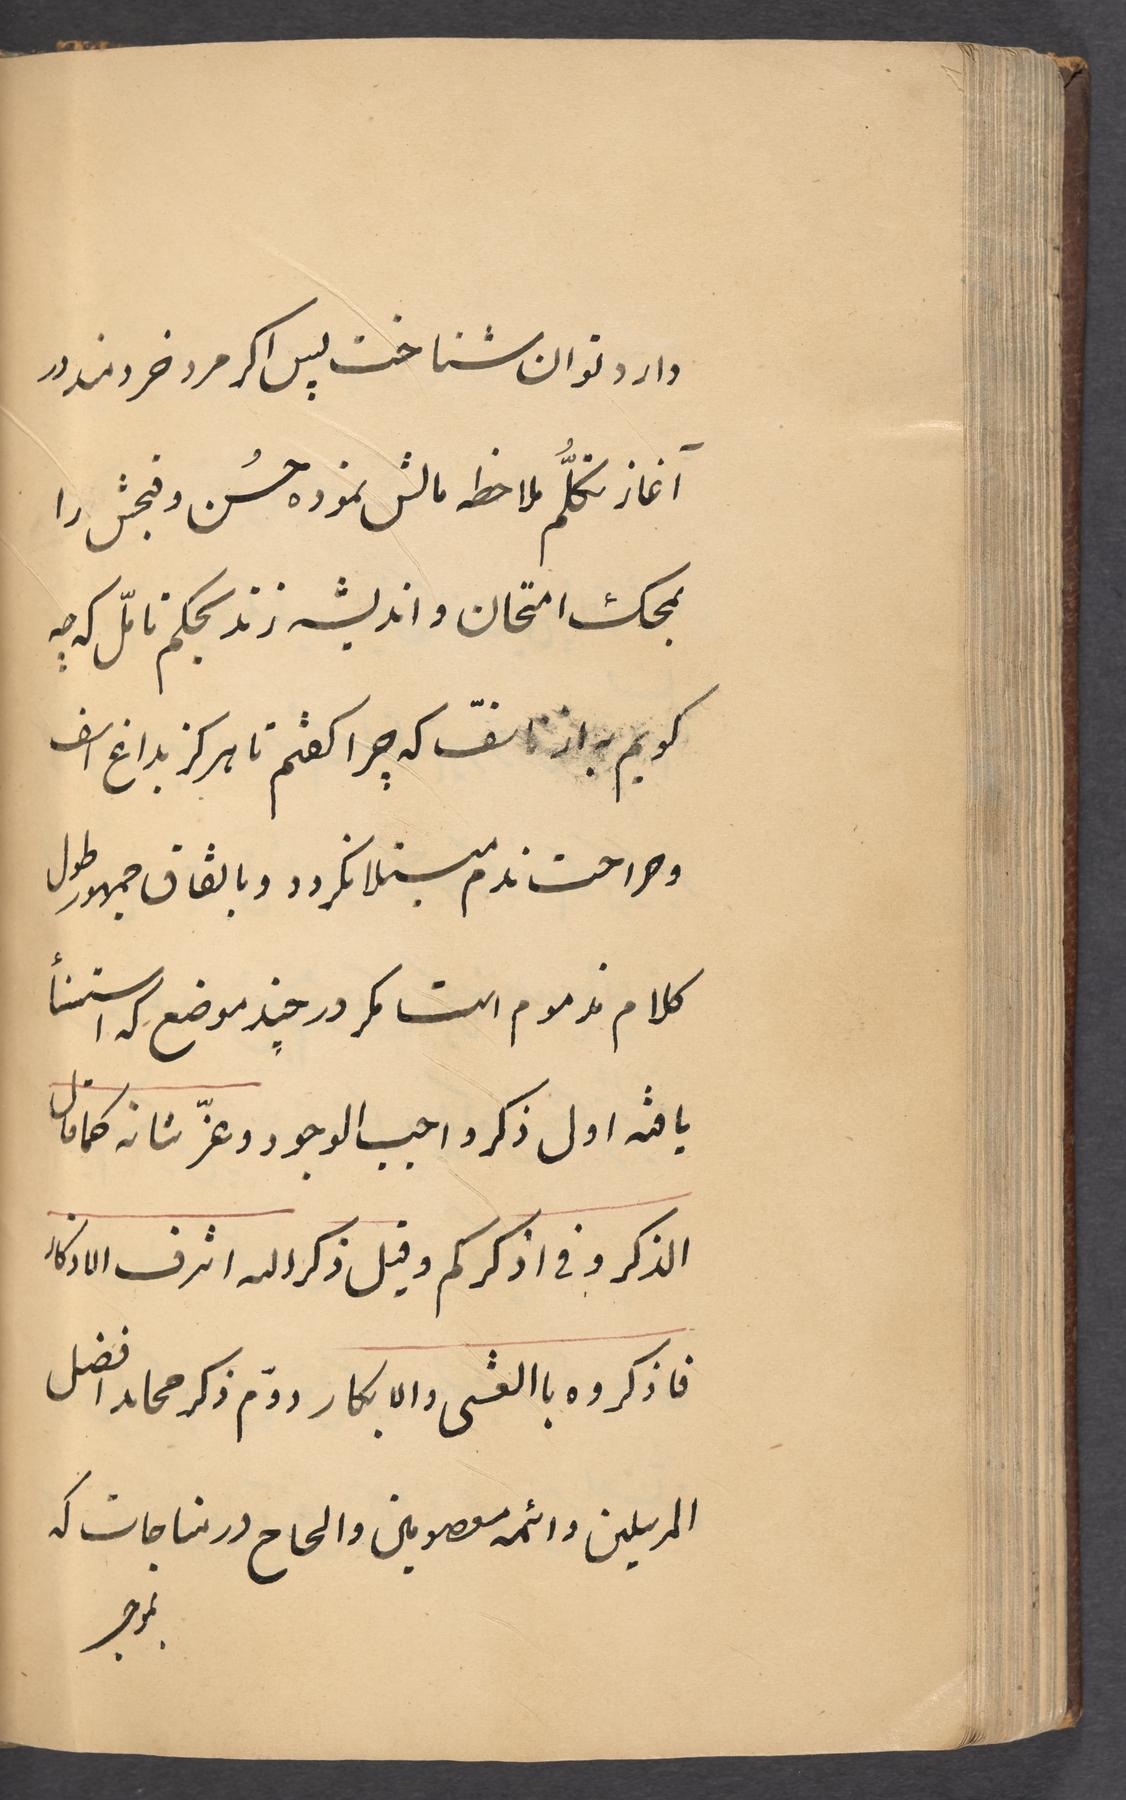 دارد توان شناخت پس اکر مرد خردمند در
آغاز تکلُّم ملاحظه مالش نموده حُسن و قبحش را
بمحک امتحان و اندیشه زند بحکم تامّل که چه
کویم به از تاسفّ که چرا کفتم تا هرکز بداغ اسف
و جراحت ندم مبتلا نکردد و باتفاق جمهور طول
کلام مذموم است مکر در چند موضع که استثنأ
یافته اول ذکر واجب الوجود و عزّ شانه کما قال
الذکرونی اذکرکم و قیل ذکر الله اشرف الاذکار
فاذکروه باالعشی والابکار دوّم ذکر محامد افضل
المرسلین و ائمه معصومین و الحاح در مناجات که
بموجب